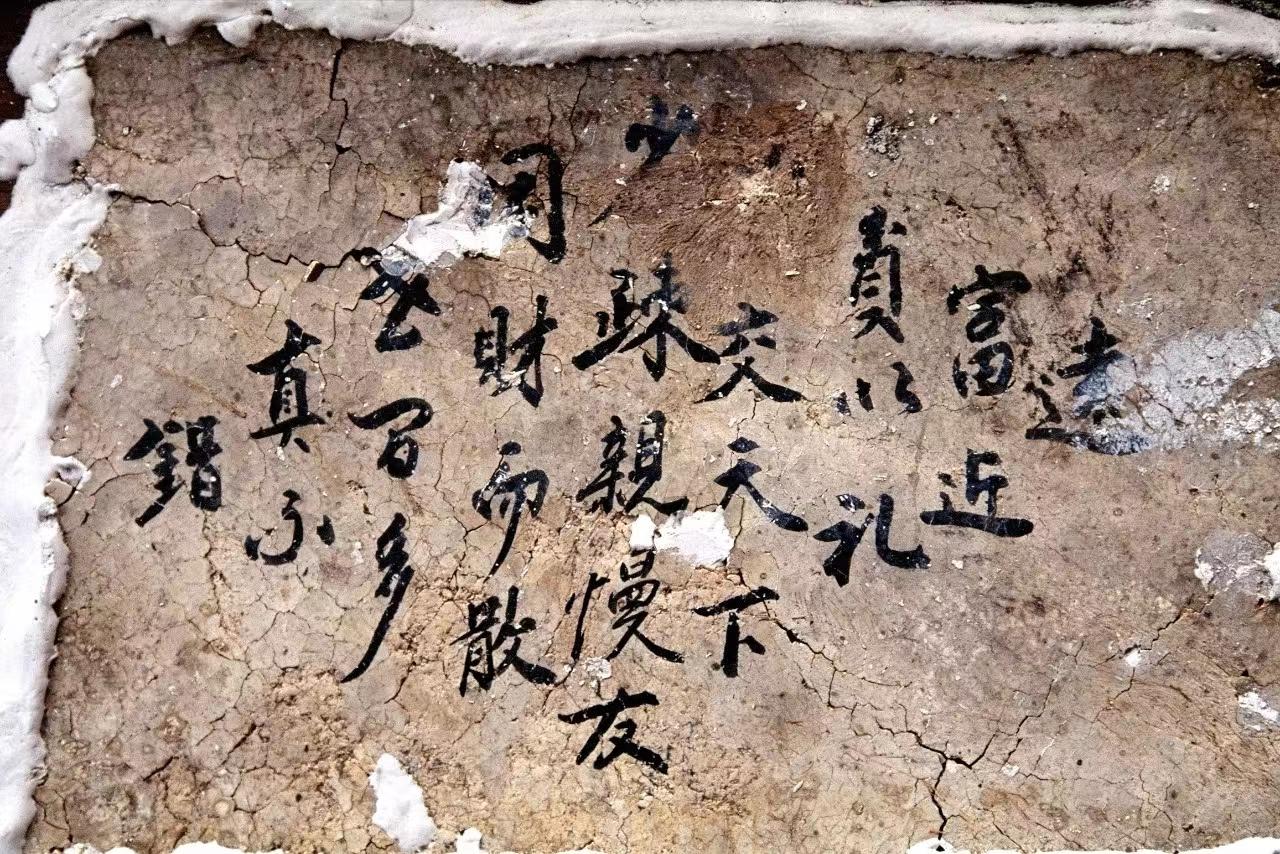 遠
富近
貴以礼
交天下
少疎親慢友
用財而散
百多
真不
錯